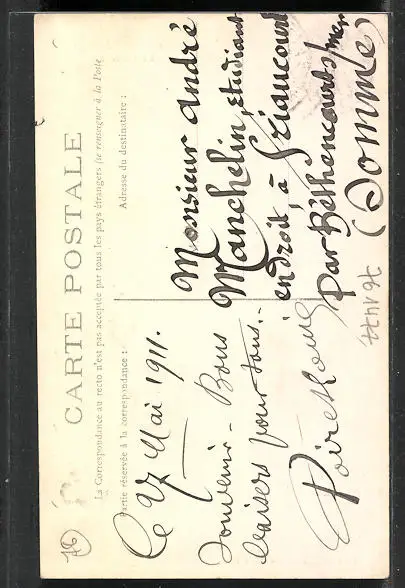 CARTE POSTALE
La Correspondance au recto n'est pas acceptée par tous les pays étrangers (se renseigner à la Poste
Partie réservée à la correspondance :
Adresse du destinataire :
Le 27 Mai 1911.
Souvenir - Bons
baisers pour tous.-
Monsieur André
Manchelin, Etudiant
en droit, à Friaucourt
par Béthencourt s/mer
(Somme)